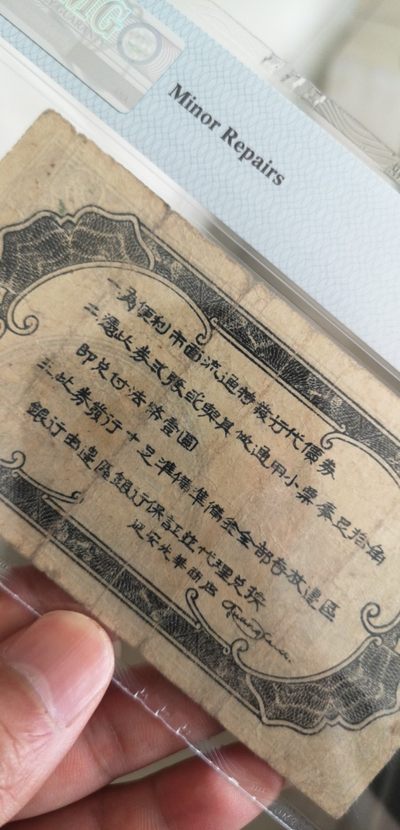 Minor Repairs
一 為便利市面流通特發行代價券
二 憑此券張或與其他通用小票湊足拾角
即兌付法幣壹圓
三 此券發行十足準備準備金全部存放邊區
銀行由邊區銀行保証並代理兌換
延安光華商店